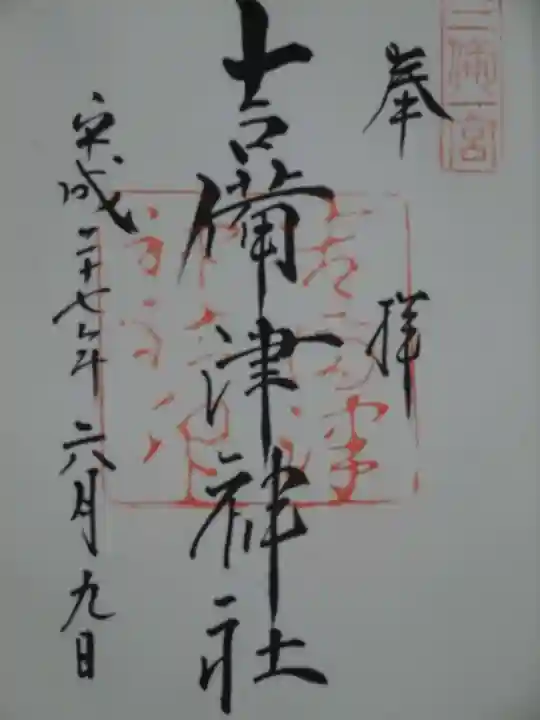 三備一宮
奉拝
吉備津神社
平成二十七年六月九日